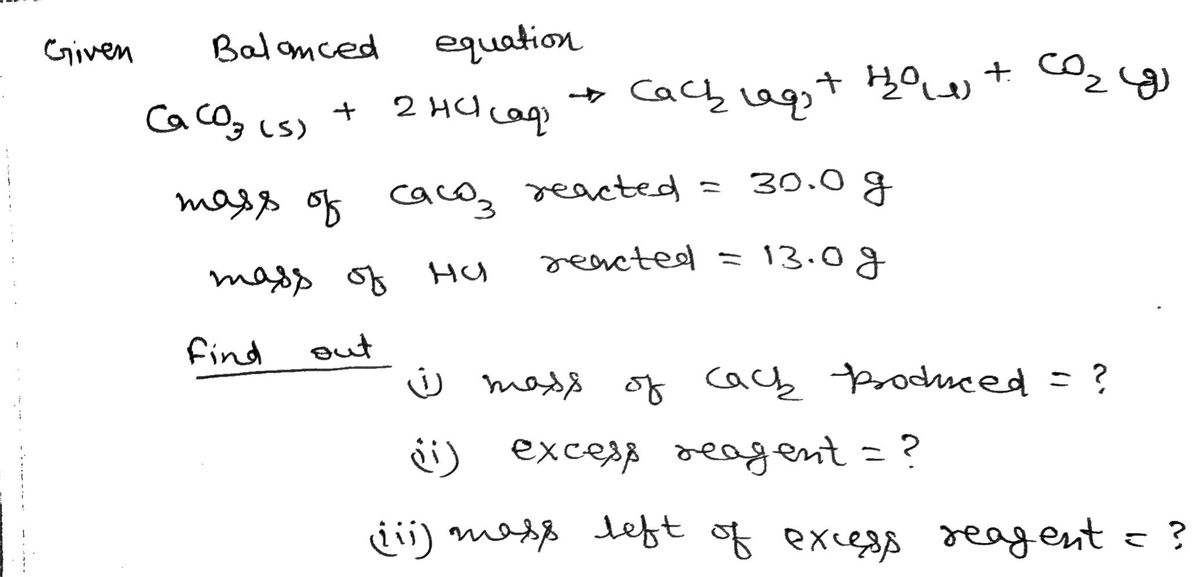 Given Balanced equation
CaCO3 (s) + 2 HCl (aq) → CaCl2 (aq) + H2O (l) + CO2 (g)
mass of CaCO3 reacted = 30.0 g
mass of HCl reacted = 13.0 g
Find out
(i) mass of CaCl2 produced = ?
(ii) excess reagent = ?
(iii) mass left of excess reagent = ?